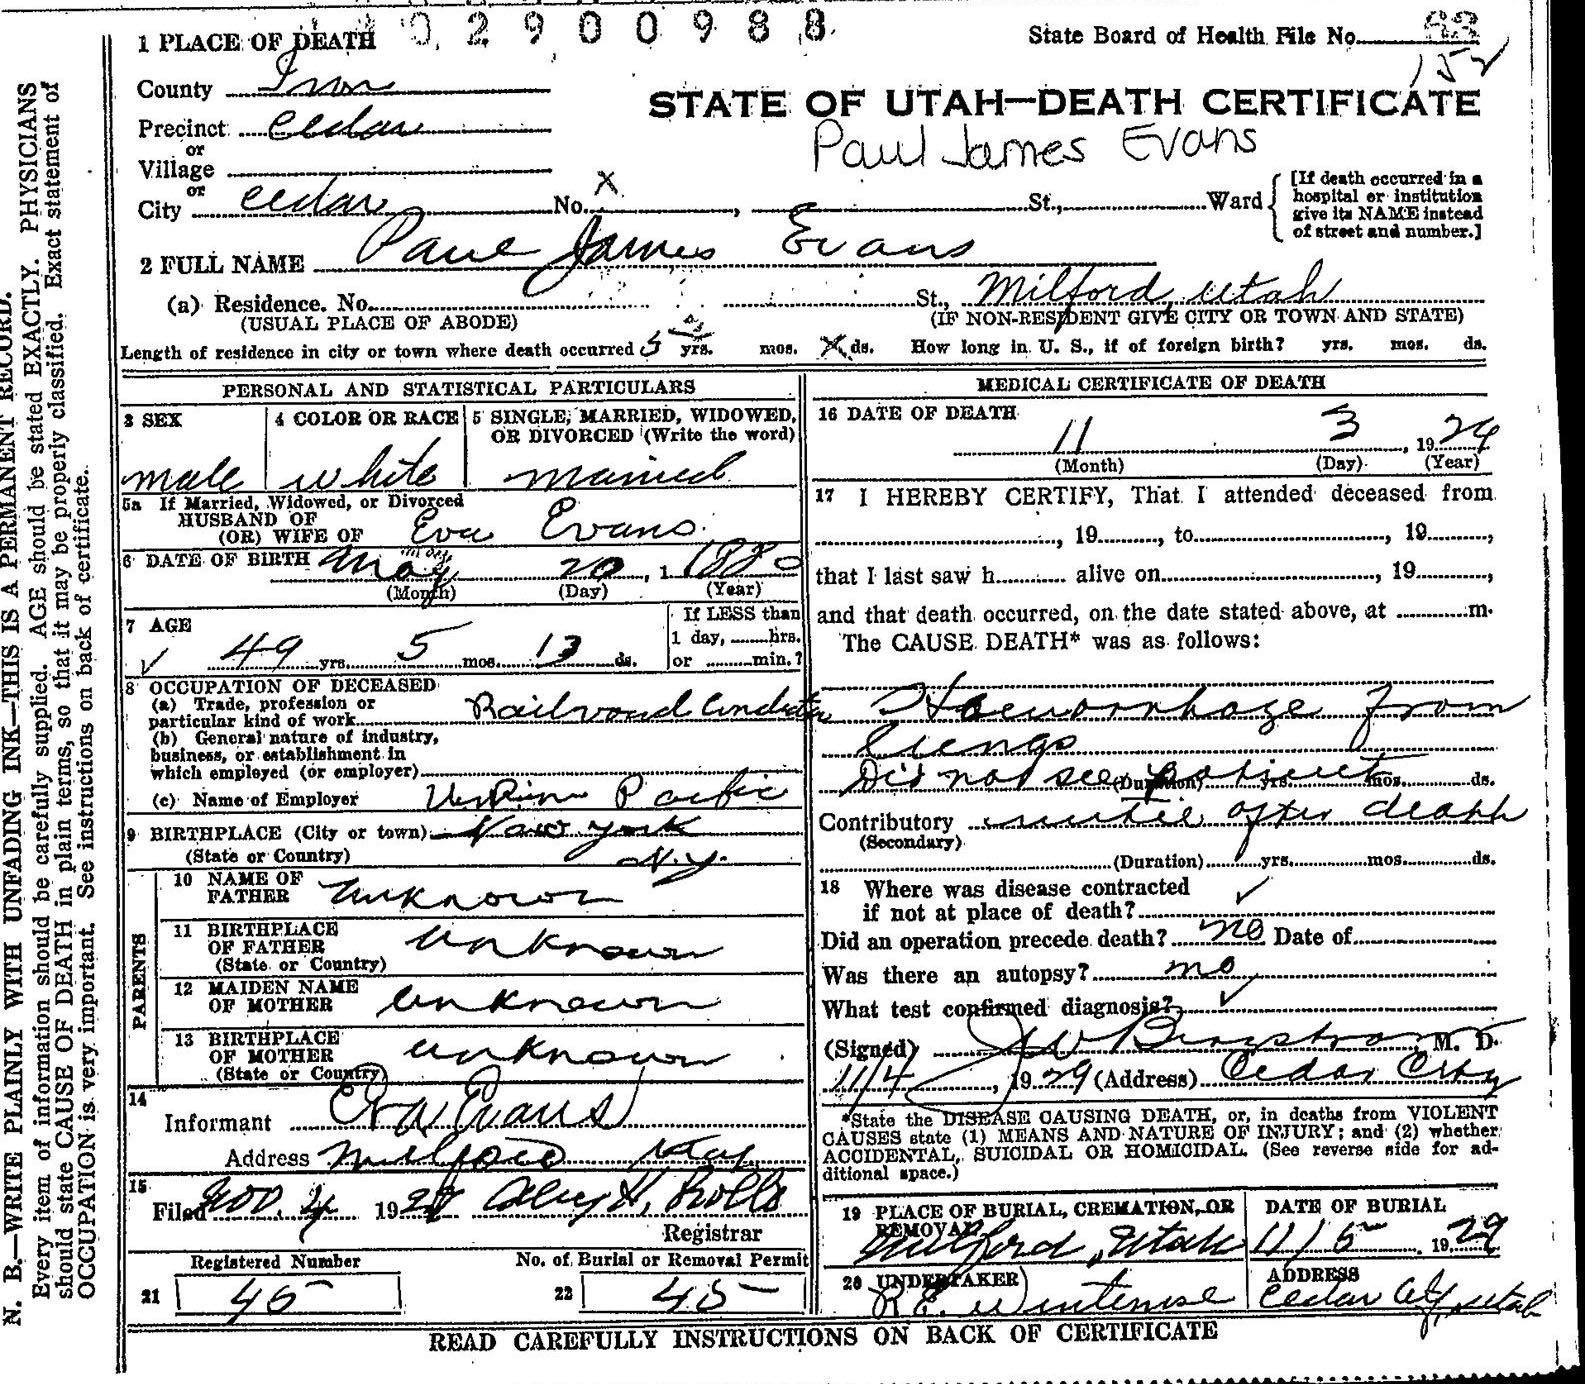 02900988
1 PLACE OF DEATH
State Board of Health File No. 63
152
County Iron
STATE OF UTAH—DEATH CERTIFICATE
Precinct Cedar
Paul James Evans
or
Village
or
City Cedar No. X, St., Ward
[If death occurred in a
hospital or institution
give its NAME instead
of street and number.]
2 FULL NAME Paul James Evans
(a) Residence. No. St., Milford, Utah
(USUAL PLACE OF ABODE) (IF NON-RESIDENT GIVE CITY OR TOWN AND STATE)
Length of residence in city or town where death occurred 5 yrs. mos. X ds. How long in U. S., if of foreign birth? yrs. mos. ds.
PERSONAL AND STATISTICAL PARTICULARS
3 SEX
male
4 COLOR OR RACE
white
5 SINGLE, MARRIED, WIDOWED,
OR DIVORCED (Write the word)
married
5a If Married, Widowed, or Divorced
HUSBAND OF
(OR) WIFE OF Eva Evans
6 DATE OF BIRTH May 20, 1 1880
(Month) (Day) (Year)
7 AGE
49 yrs. 5 mos. 13 ds.
If LESS than
1 day, hrs.
or min.?
8 OCCUPATION OF DECEASED
(a) Trade, profession or
particular kind of work Railroad Conductor
(b) General nature of industry,
business, or establishment in
which employed (or employer)
(c) Name of Employer Union Pacific
9 BIRTHPLACE (City or town) New York
(State or Country) N.Y.
PARENTS
10 NAME OF
FATHER unknown
11 BIRTHPLACE
OF FATHER unknown
(State or Country)
12 MAIDEN NAME
OF MOTHER unknown
13 BIRTHPLACE
OF MOTHER unknown
(State or Country)
14
Informant Eva Evans
Address Milford Utah
15
Filed Nov. 4 1929
Registrar
Registered Number
21 45
No. of Burial or Removal Permit
22 45
MEDICAL CERTIFICATE OF DEATH
16 DATE OF DEATH
11 3, 1929
(Month) (Day) (Year)
17 I HEREBY CERTIFY, That I attended deceased from
, 19, to, 19,
that I last saw h alive on, 19,
and that death occurred, on the date stated above, at m.
The CAUSE DEATH* was as follows:
Haemorrhage from
Lungs
Did not see patient
(Duration) yrs. mos. ds.
Contributory until after death
(Secondary)
(Duration) yrs. mos. ds.
18 Where was disease contracted
if not at place of death? ✓
Did an operation precede death? no Date of
Was there an autopsy? no
What test confirmed diagnosis? ✓
(Signed) J W Bergstrom M. D.
11/4, 1929 (Address) Cedar City
*State the DISEASE CAUSING DEATH, or, in deaths from VIOLENT
CAUSES state (1) MEANS AND NATURE OF INJURY; and (2) whether
ACCIDENTAL, SUICIDAL OR HOMICIDAL. (See reverse side for ad-
ditional space.)
19 PLACE OF BURIAL, CREMATION, OR
REMOVAL
Milford, Utah
DATE OF BURIAL
11/5, 1929
20 UNDERTAKER
ADDRESS
Cedar City, Utah
READ CAREFULLY INSTRUCTIONS ON BACK OF CERTIFICATE
N. B.—WRITE PLAINLY WITH UNFADING INK—THIS IS A PERMANENT RECORD.
Every item of information should be carefully supplied. AGE should be stated EXACTLY. PHYSICIANS
should state CAUSE OF DEATH in plain terms, so that it may be properly classified. Exact statement of
OCCUPATION is very important. See instructions on back of certificate.